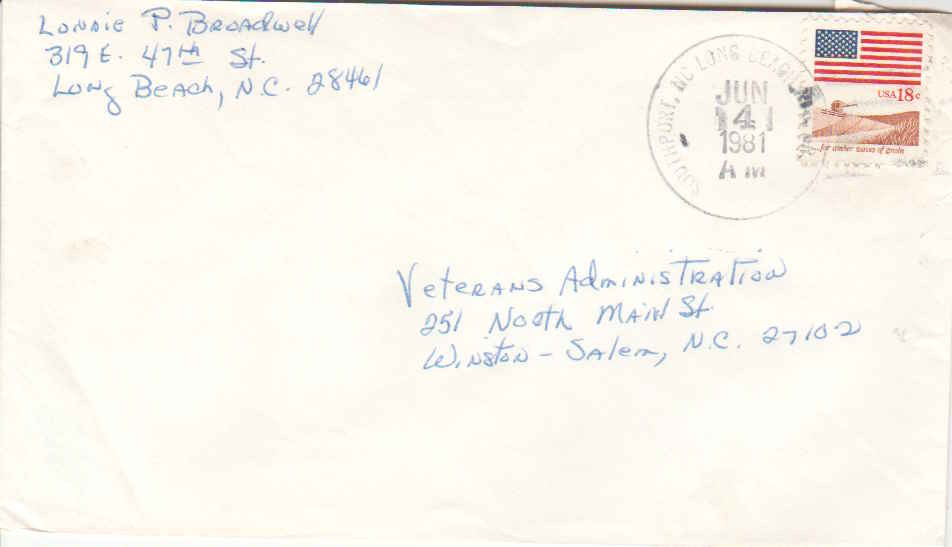 Lonnie P. Broadwell
319 E. 47th St.
Long Beach, N.C. 28461
SOUTHPORT, NC LONG BEACH
JUN
4
1981
AM
USA 18c
for amber waves of grain
Veterans Administration
251 North Main St.
Winston-Salem, N.C. 27102